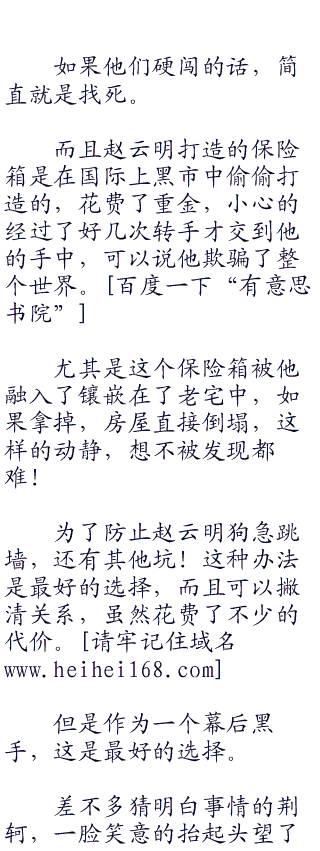 如果他们硬闯的话，简
直就是找死。
而且赵云明打造的保险
箱是在国际上黑市中偷偷打
造的，花费了重金，小心的
经过了好几次转手才交到他
的手中，可以说他欺骗了整
个世界。[百度一下“有意思
书院”]
尤其是这个保险箱被他
融入了镶嵌在了老宅中，如
果拿掉，房屋直接倒塌，这
样的动静，想不被发现都
难！
为了防止赵云明狗急跳
墙，还有其他坑！这种办法
是最好的选择，而且可以撇
清关系，虽然花费了不少的
代价。[请牢记住域名
www.heihei168.com]
但是作为一个幕后黑
手，这是最好的选择。
差不多猜明白事情的荆
轲，一脸笑意的抬起头望了